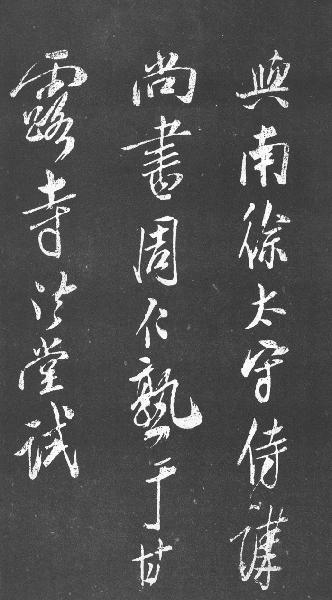 與南徐太守侍講
尚書周仁熟于甘
露寺法堂試